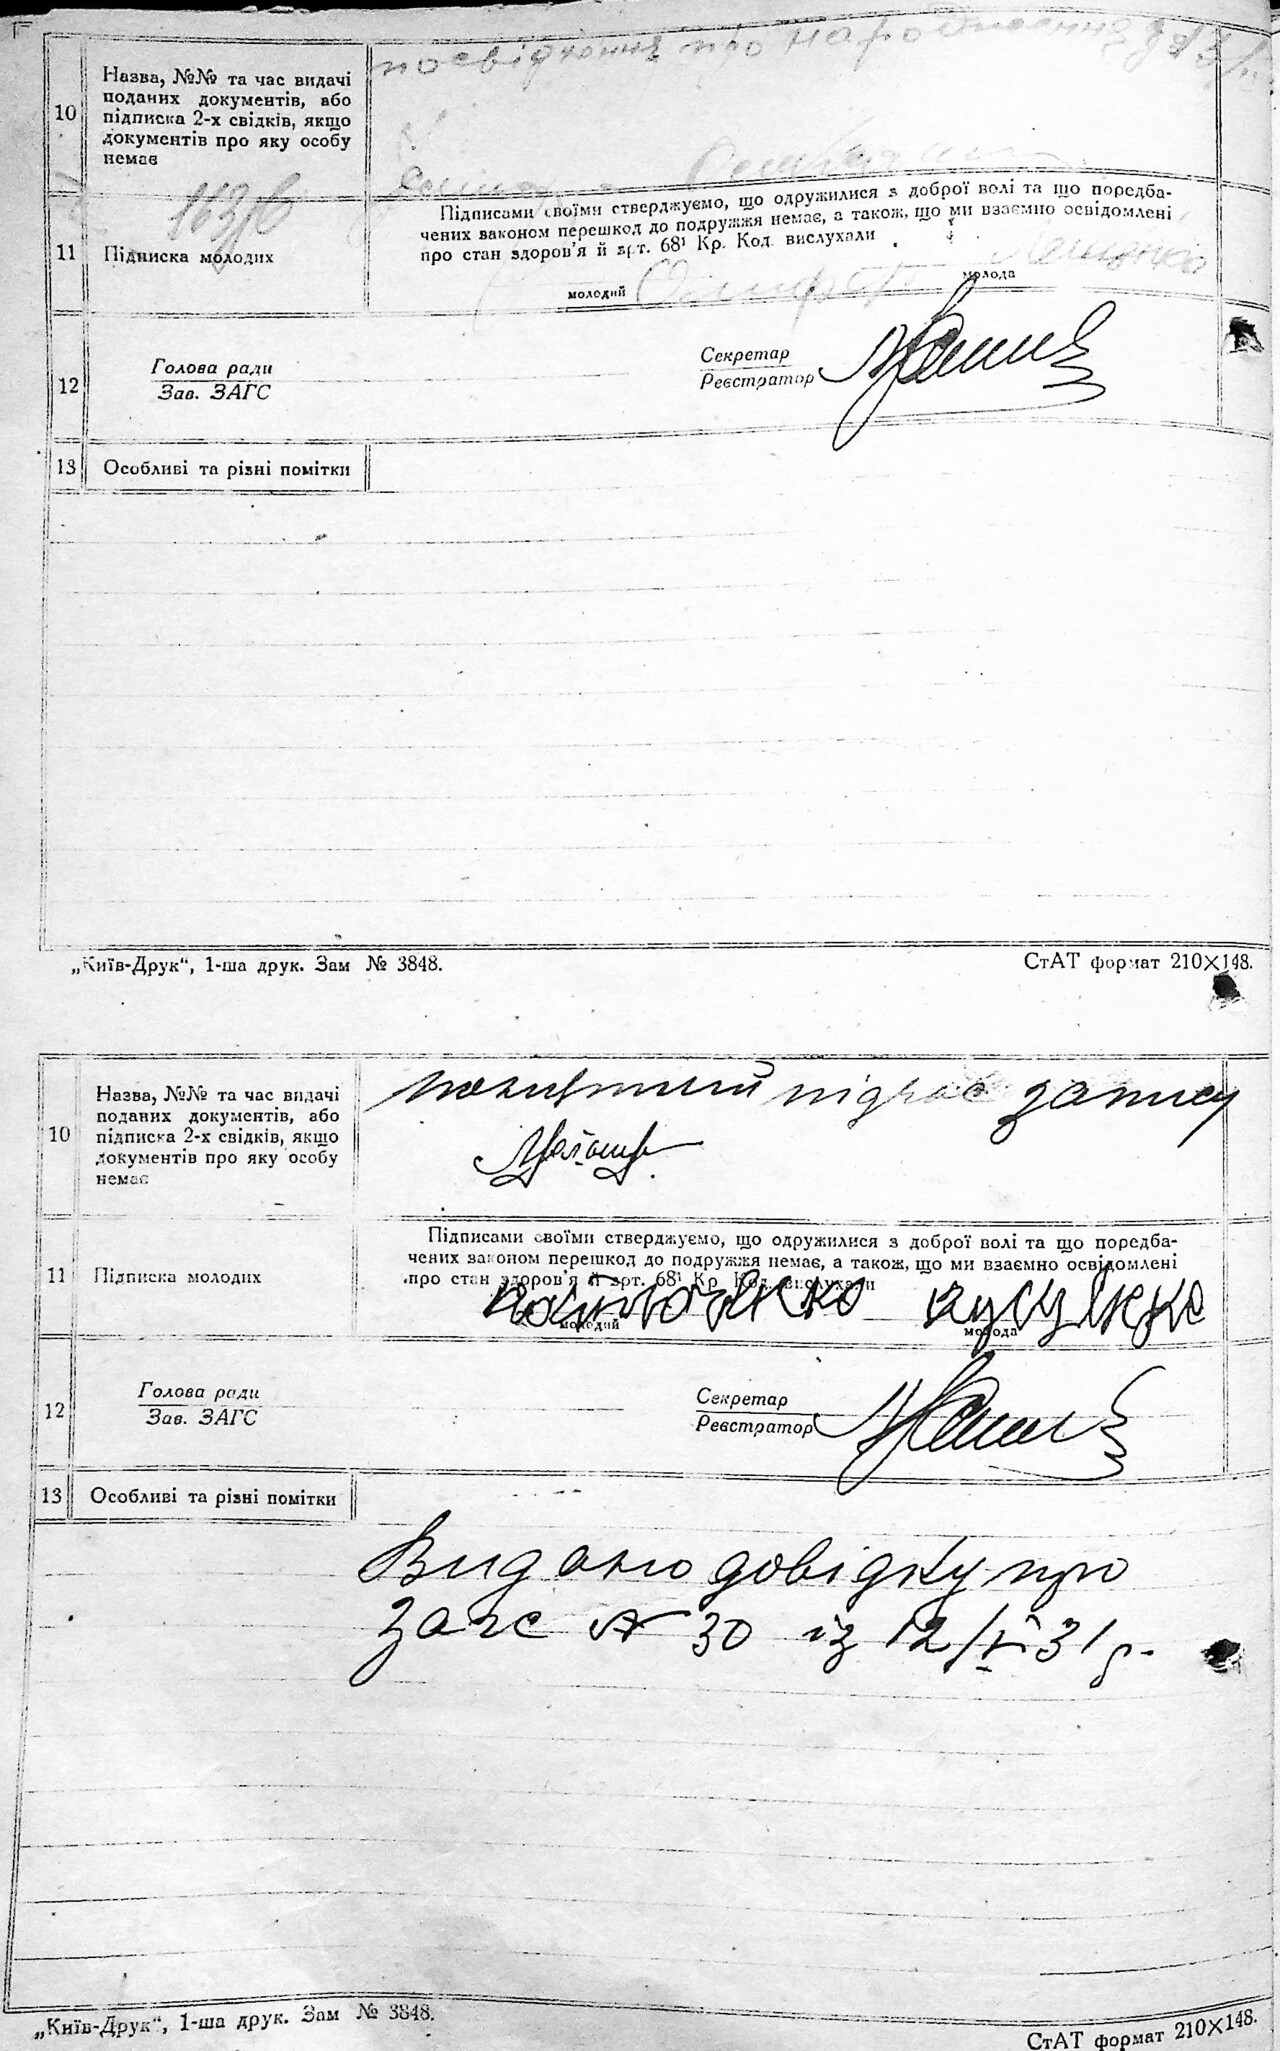 посвідчення про народження
10 Назва, №№ та час видачі
поданих документів, або
підписка 2-х свідків, якщо
документів про яку особу
немає
11 Підписка молодих
Підписами своїми стверджуємо, що одружилися з доброї волі та що передба-
чених законом перешкод до подружжя немає, а також, що ми взаємно освідомлені
про стан здоров'я й арт. 68¹ Кр. Код. вислухали
молодий молода
12 Голова ради
Зав. ЗАГС
Секретар
Реєстратор
13 Особливі та різні помітки
„Київ-Друк“, 1-ша друк. Зам № 3848. СтАТ формат 210×148.
10 Назва, №№ та час видачі
поданих документів, або
підписка 2-х свідків, якщо
документів про яку особу
немає
підчас запису
11 Підписка молодих
Підписами своїми стверджуємо, що одружилися з доброї волі та що передба-
чених законом перешкод до подружжя немає, а також, що ми взаємно освідомлені
про стан здоров'я й арт. 68¹ Кр. Код. вислухали
молодий молода
12 Голова ради
Зав. ЗАГС
Секретар
Реєстратор
13 Особливі та різні помітки
Видано довідку про
загс № 30 із 12/V 31 р.
„Київ-Друк“, 1-ша друк. Зам № 3848.
СтАТ формат 210×148.